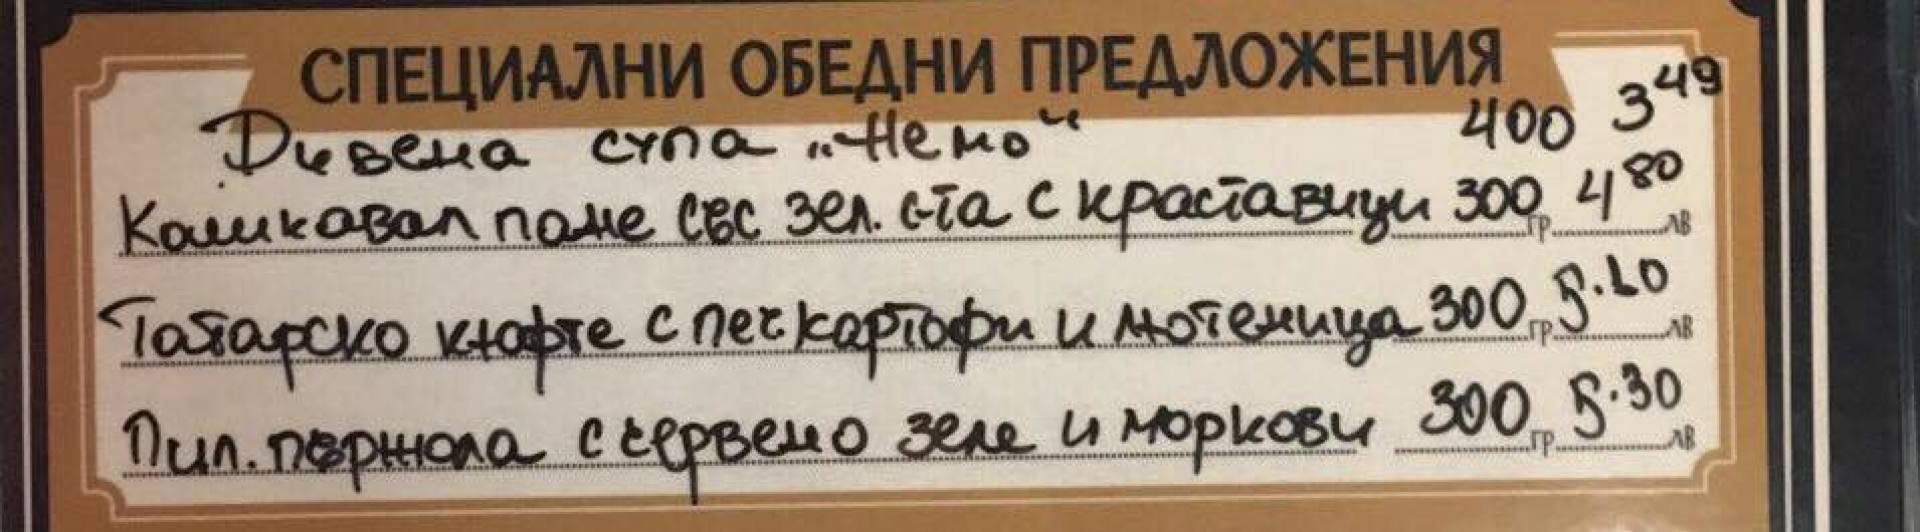 СПЕЦИАЛНИ ОБЕДНИ ПРЕДЛОЖЕНИЯ
супа „Немо“ 400 3 49
Кашкавал пане със зел. с-та с краставици 300 гр 4 80 лв
Татарско кюфте с печ картофи и лютеница 300 гр лв
Пил. пържола с червено зеле и моркови 300 гр 5.30 лв